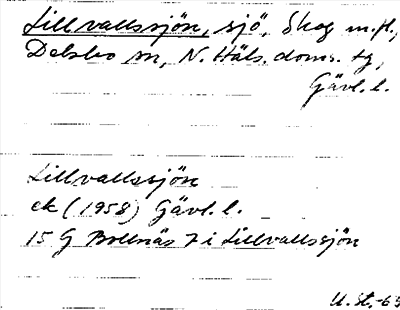 Lillvallssjön, sjö, Skog m.fl.,
Delsbo sn, N. Häls. doms. tg,
Gävl. l.
Lillvallssjön
ek (1958) Gävl. l.
15 G Bollnäs 7 i Lillvallssjön
U.St.-65